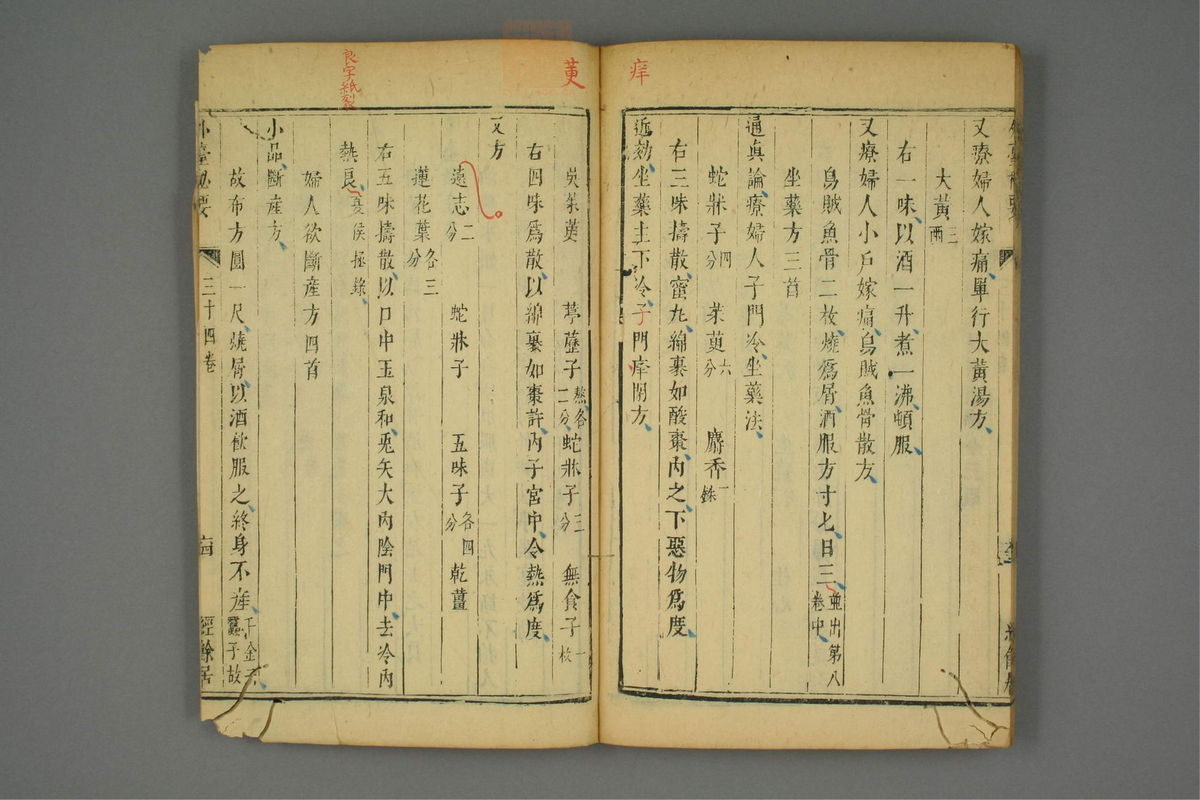 痒
又療婦人嫁痛單行大黃湯方
大黃三兩
右一味以酒一升煮一沸頓服
又療婦人小戶嫁痛烏賊魚骨散方
烏賊魚骨二枚燒爲屑酒服方寸匕日三並出第八卷中
坐藥方三首
通真論療婦人子門冷坐藥法
蛇牀子四分 茱萸六分 麝香一銖
右三味擣散蜜丸綿裹如酸棗內之下惡物爲度
近効坐藥主下冷子門痒閉方
萸
良字紙裂
吳茱萸 葶藶子熬各二分 蛇牀子三分 無食子一枚
右四味爲散以綿裹如棗許內子宮中令熱爲度
又方
遠志二分 蛇牀子 五味子各四分 乾薑
蓮花葉各三分
右五味擣散以口中玉泉和兎矢大內陰門中去冷內
熱良夏侯拯錄
婦人欲斷産方四首
小品斷産方
故布方圓一尺燒屑以酒飲服之終身不産千金云蠶子故
外臺秘要 三十四卷 經餘居